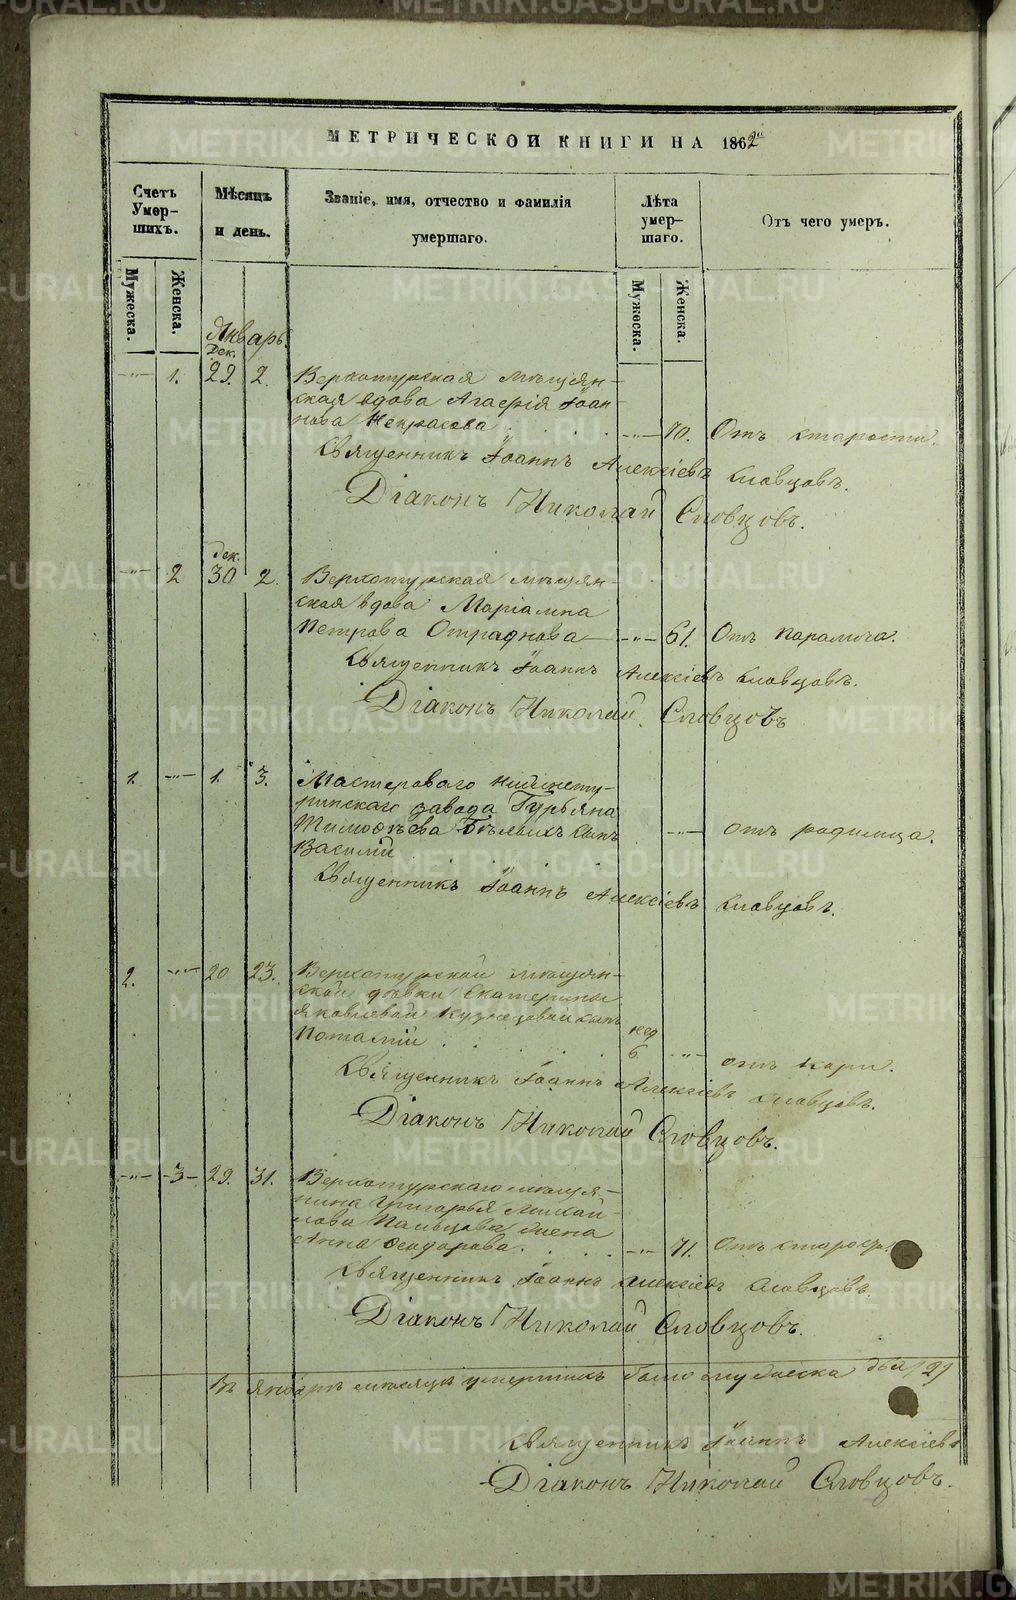 МЕТРИЧЕСКОЙ КНИГИ НА 1862й
Счетъ Умершихъ.
Мѣсяцъ и день.
Званіе, имя, отчество и фамилія умершаго.
Лѣта умершаго.
Отъ чего умеръ.
Мужеска.
Женска.
Мужеска.
Женска.
Январь.
Дек.
1. 29. 2. Верхотурская мѣщан-
ская вдова Агафія Іоан-
нова Некрасова 70. Отъ старости.
Священникъ Іоаннъ Алексіевъ Словцовъ.
Діаконъ Николай Словцовъ.
Дек.
2 30 2. Верхотурская мѣщан-
ская вдова Маріамна
Петрова Отраднова 61. Отъ паралича.
Священникъ Іоаннъ Алексіевъ Словцовъ.
Діаконъ Николай Словцовъ
1. 1. 3. Мастероваго Нижнету-
ринскаго завода Гурьяна
Тимоѳѣева Бѣлыихъ сынъ отъ родимца.
Василій
Священникъ Іоаннъ Алексіевъ Словцовъ.
2. 20 23. Верхотурской мѣщан-
ской дѣвки Екатерины
Яковлевой Кузнецовой сынъ
нед
Потапій 6 отъ кори.
Священникъ Іоаннъ Алексіевъ Словцовъ.
Діаконъ Николай Словцовъ.
3 29. 31. Верхотурскаго мѣща-
нина Григорья Михай-
лова Пальцова жена
Анна Ѳеодорова. 71. Отъ старос.
Священникъ Іоаннъ Алексіевъ Словцовъ.
Діаконъ Николай Словцовъ.
Въ Январѣ мѣсяцѣ умершихъ было мужеска два /2/
Священникъ Іоаннъ Алексіевъ
Діаконъ Николай Словцовъ.
METRIKI.GASO-URAL.RU